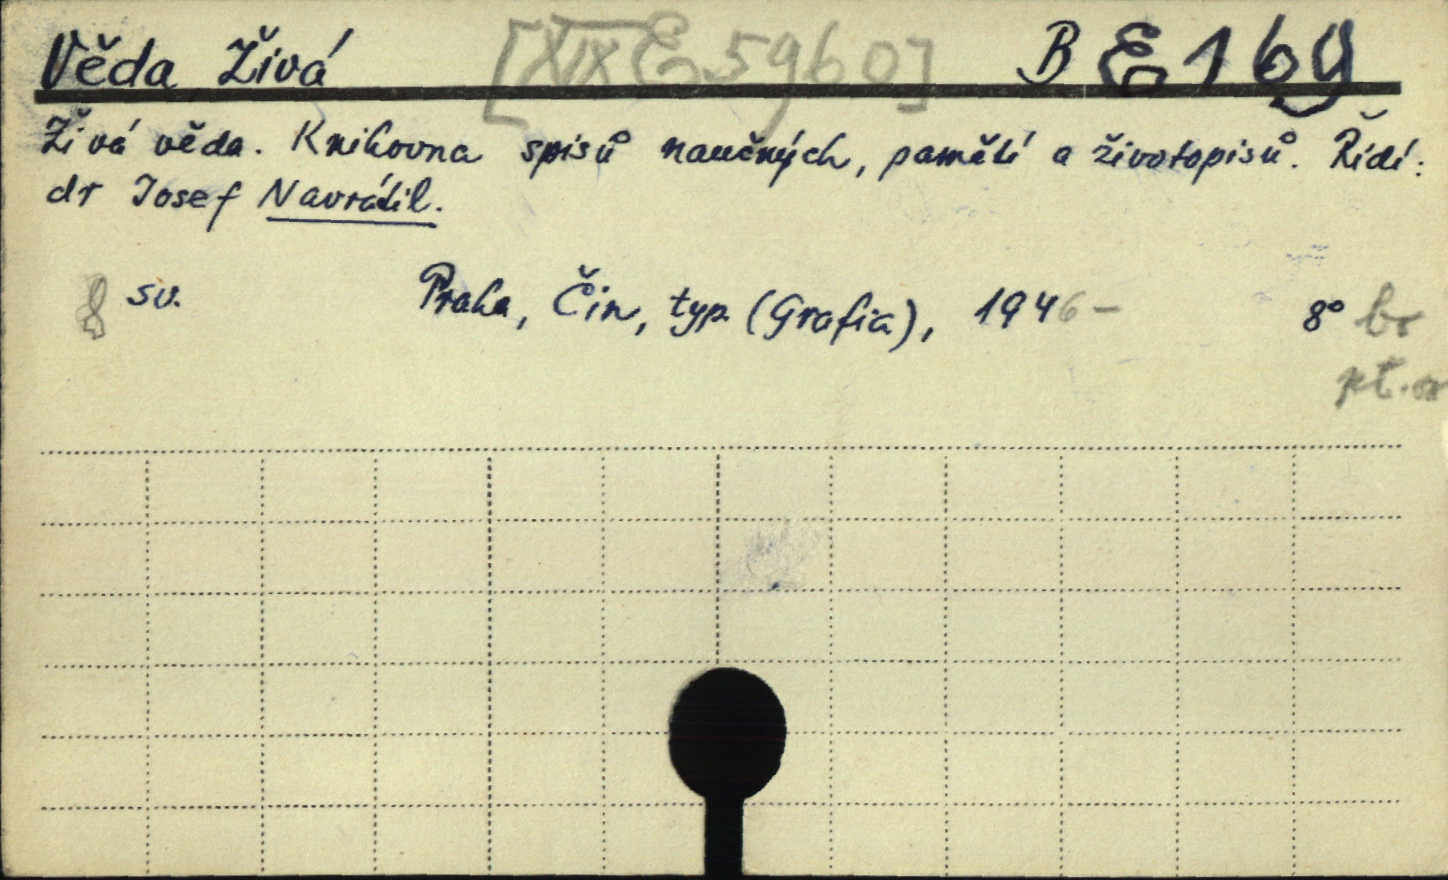 Věda Živá [XIX E 5960] B E 169
Živá věda. Knihovna spisů naučných, pamětí a životopisů. Řídí:
dr Josef Navrátil.
8 sv. Praha, Čin, typ. (Grafia), 1946- 8° br